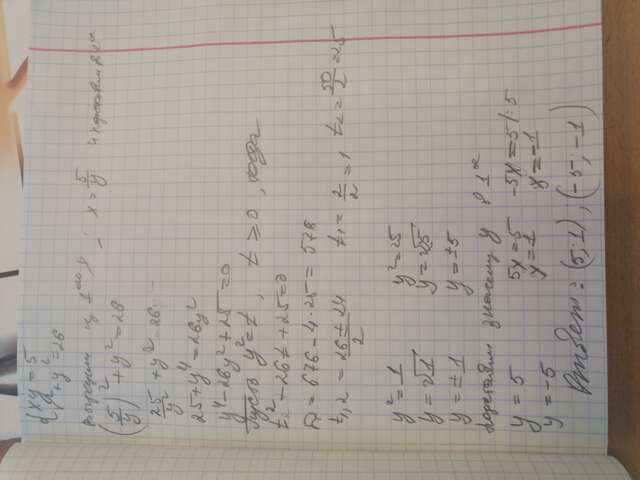 { xy = 5
x² + y² = 26
Выразим из 1ого x : x = 5/y и подставим в 2ое
(5/y)² + y² = 26
25/y² + y² = 26
25 + y⁴ = 26y²
y⁴ - 26y² + 25 = 0
Пусть y² = t, t ≥ 0, тогда
t² - 26t + 25 = 0
D = 676 - 4·25 = 576
t₁,₂ = 26 ± 24 / 2 t₁ = 2/2 = 1 t₂ = 50/2 = 25
y² = 1 y² = 25
y = √1 y = √25
y = ±1 y = ±5
подставим значения y в 1ое
y = 5 5x = 5 -5x = 5 |:5
y = -5 x = 1 x = -1
Ответ: (5; 1), (-5; -1)